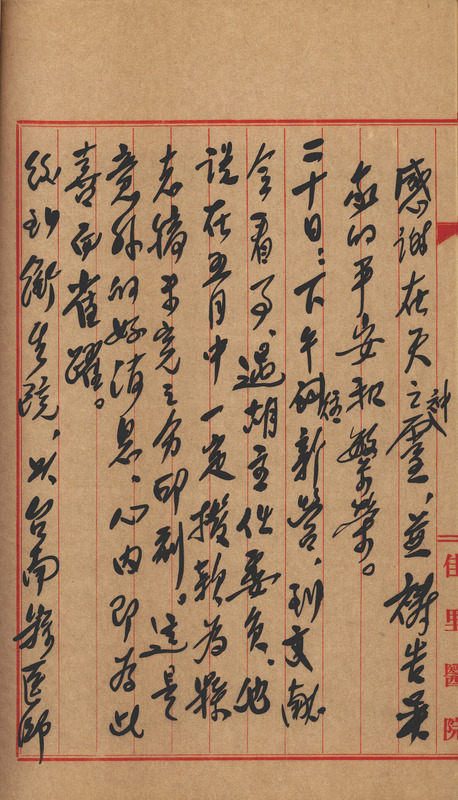 佳里醫院
感謝在天之神靈，並禱告吾
家的平安和繁榮。
二十日：下午往新營，到文献
会看了，遇胡主任委員，他
説在五月中一定撥款為縣
志稿未完之分印刷。這是
意外的好消息，心内即為此
喜而雀躍。
後到衛生院，以台南縣医師